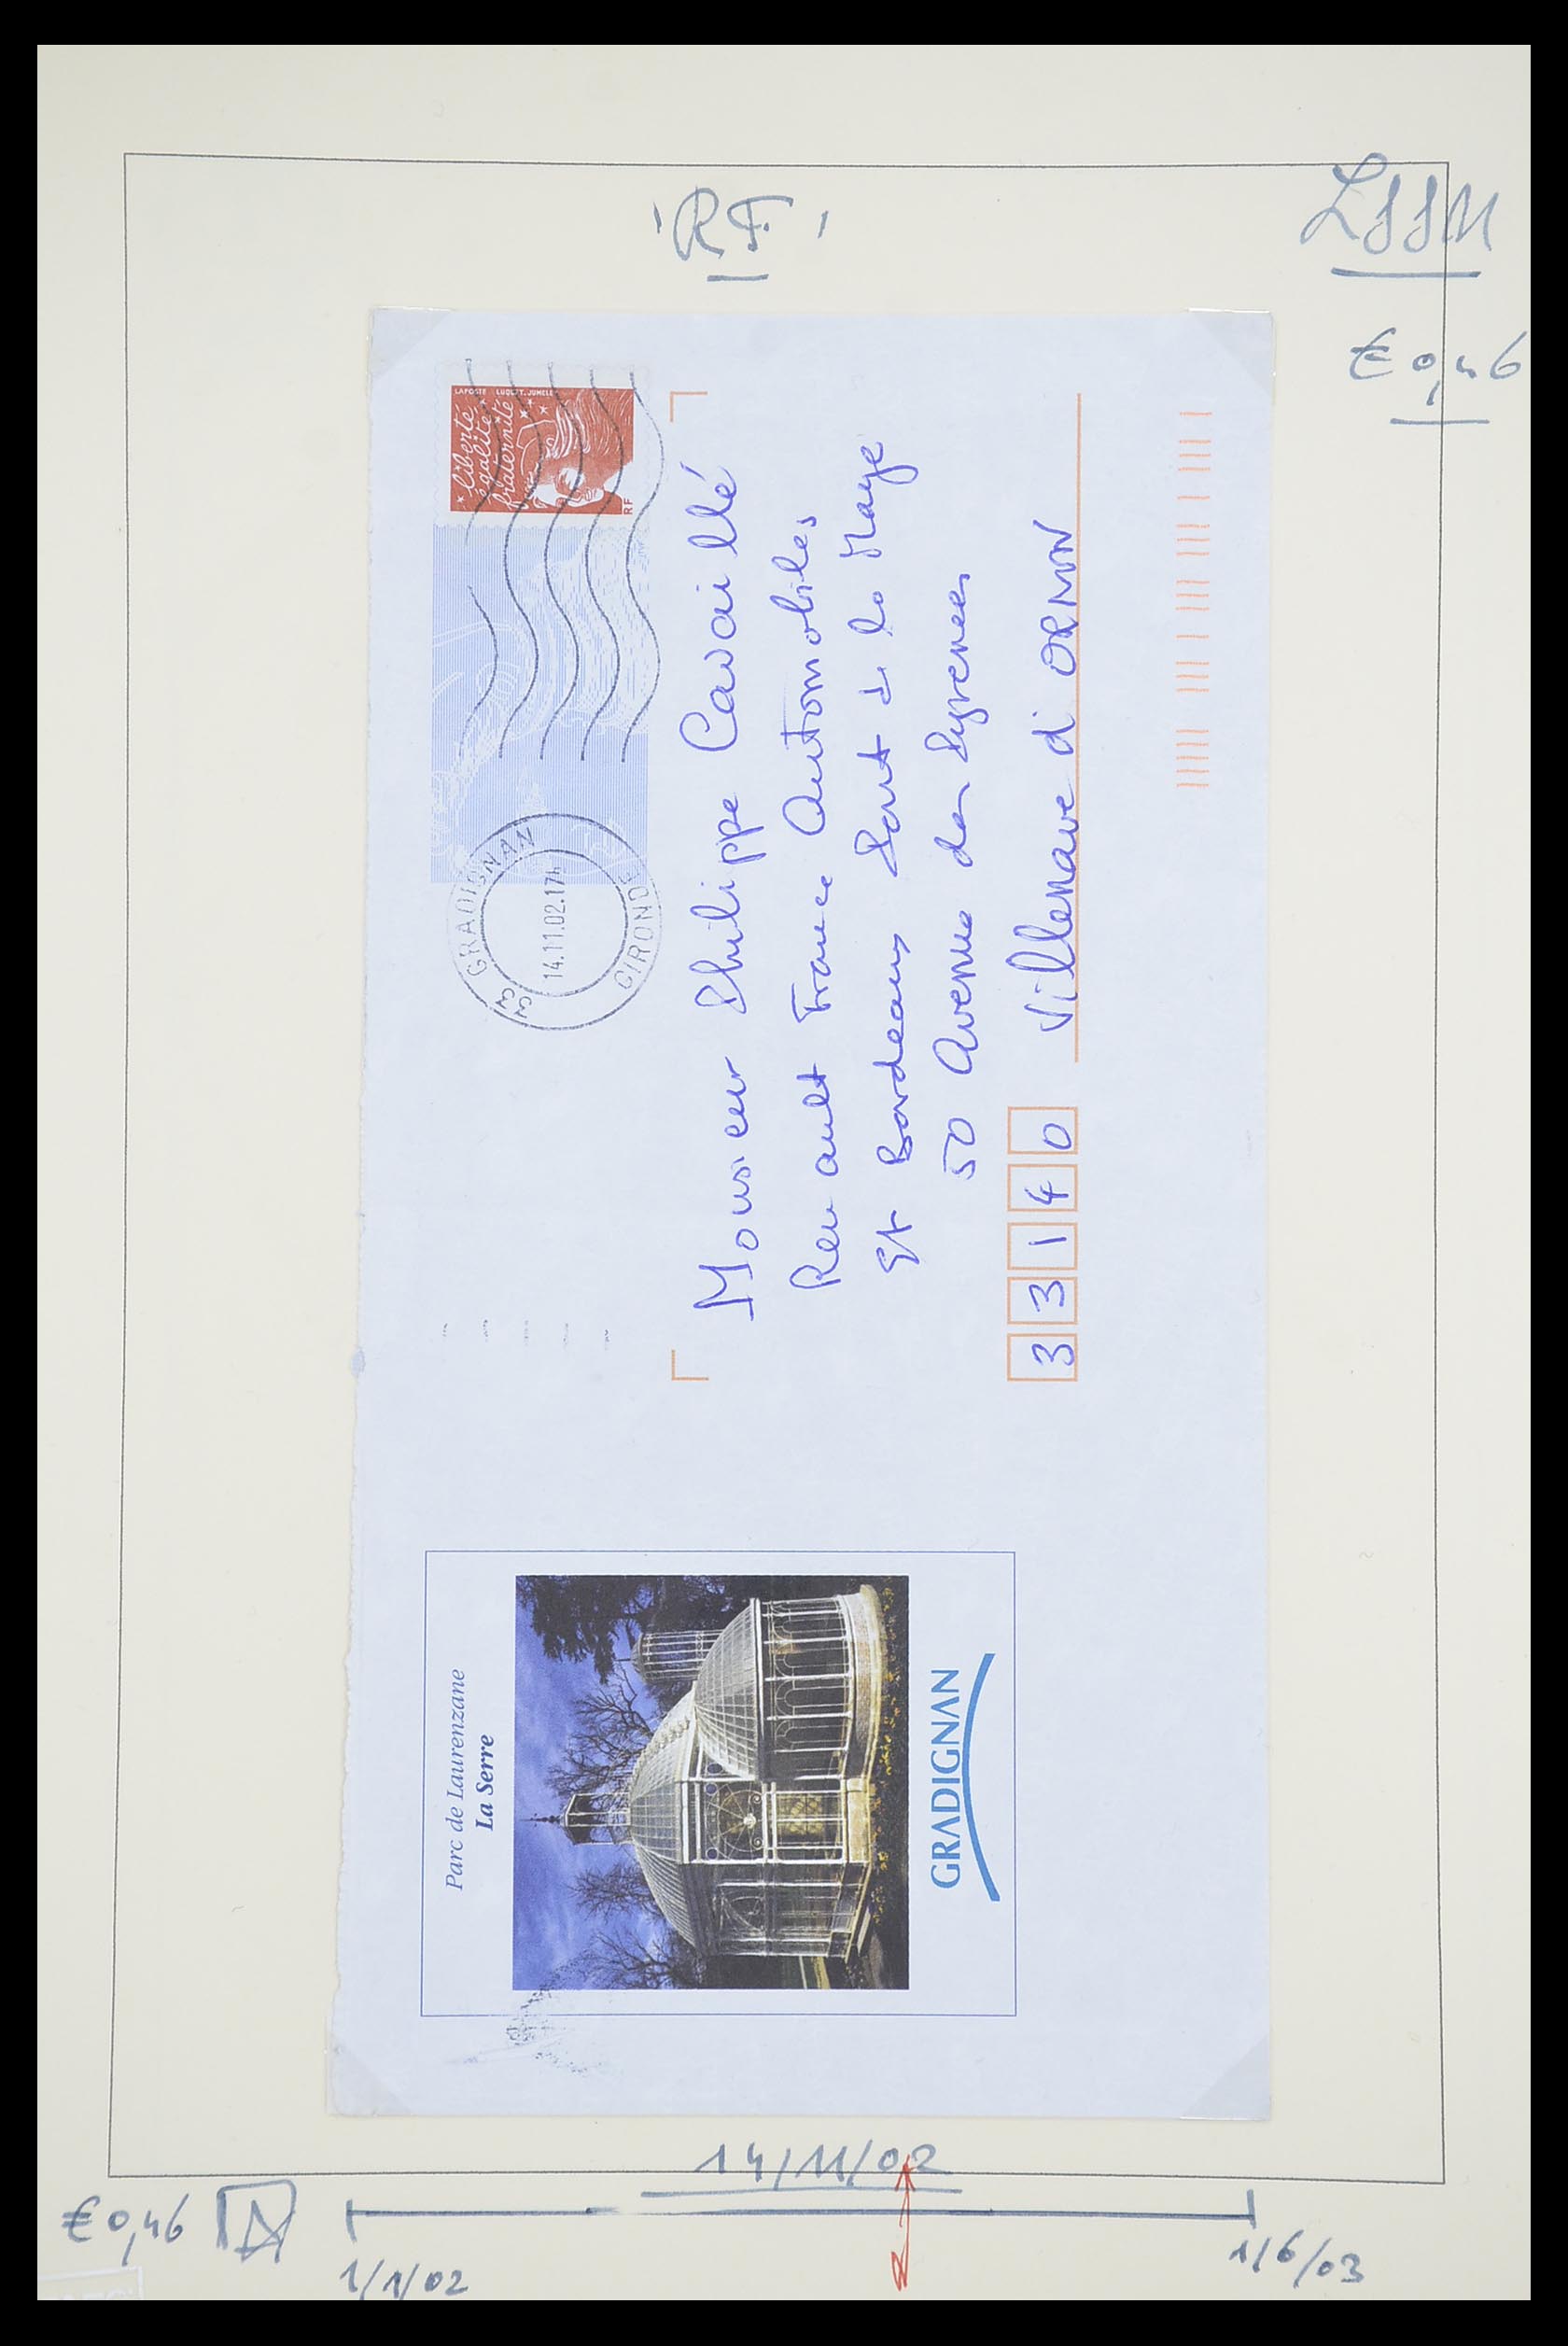 'RF'
LSSM
€ 0,46
LAPOSTE LUQUET.JUMELET
liberté
égalité
fraternité
RF
33 GRADIGNAN
14.11.02.17H
GIRONDE
Monsieur Philippe Cavaillé
Renault France Automobiles
et Bordeaux Pont de la Maye
50 Avenue des Pyrenees
33140 Villenave d'ORNON
Parc de Laurenzane
La Serre
GRADIGNAN
14/11/02
€ 0,46
1/1/02
1/6/03